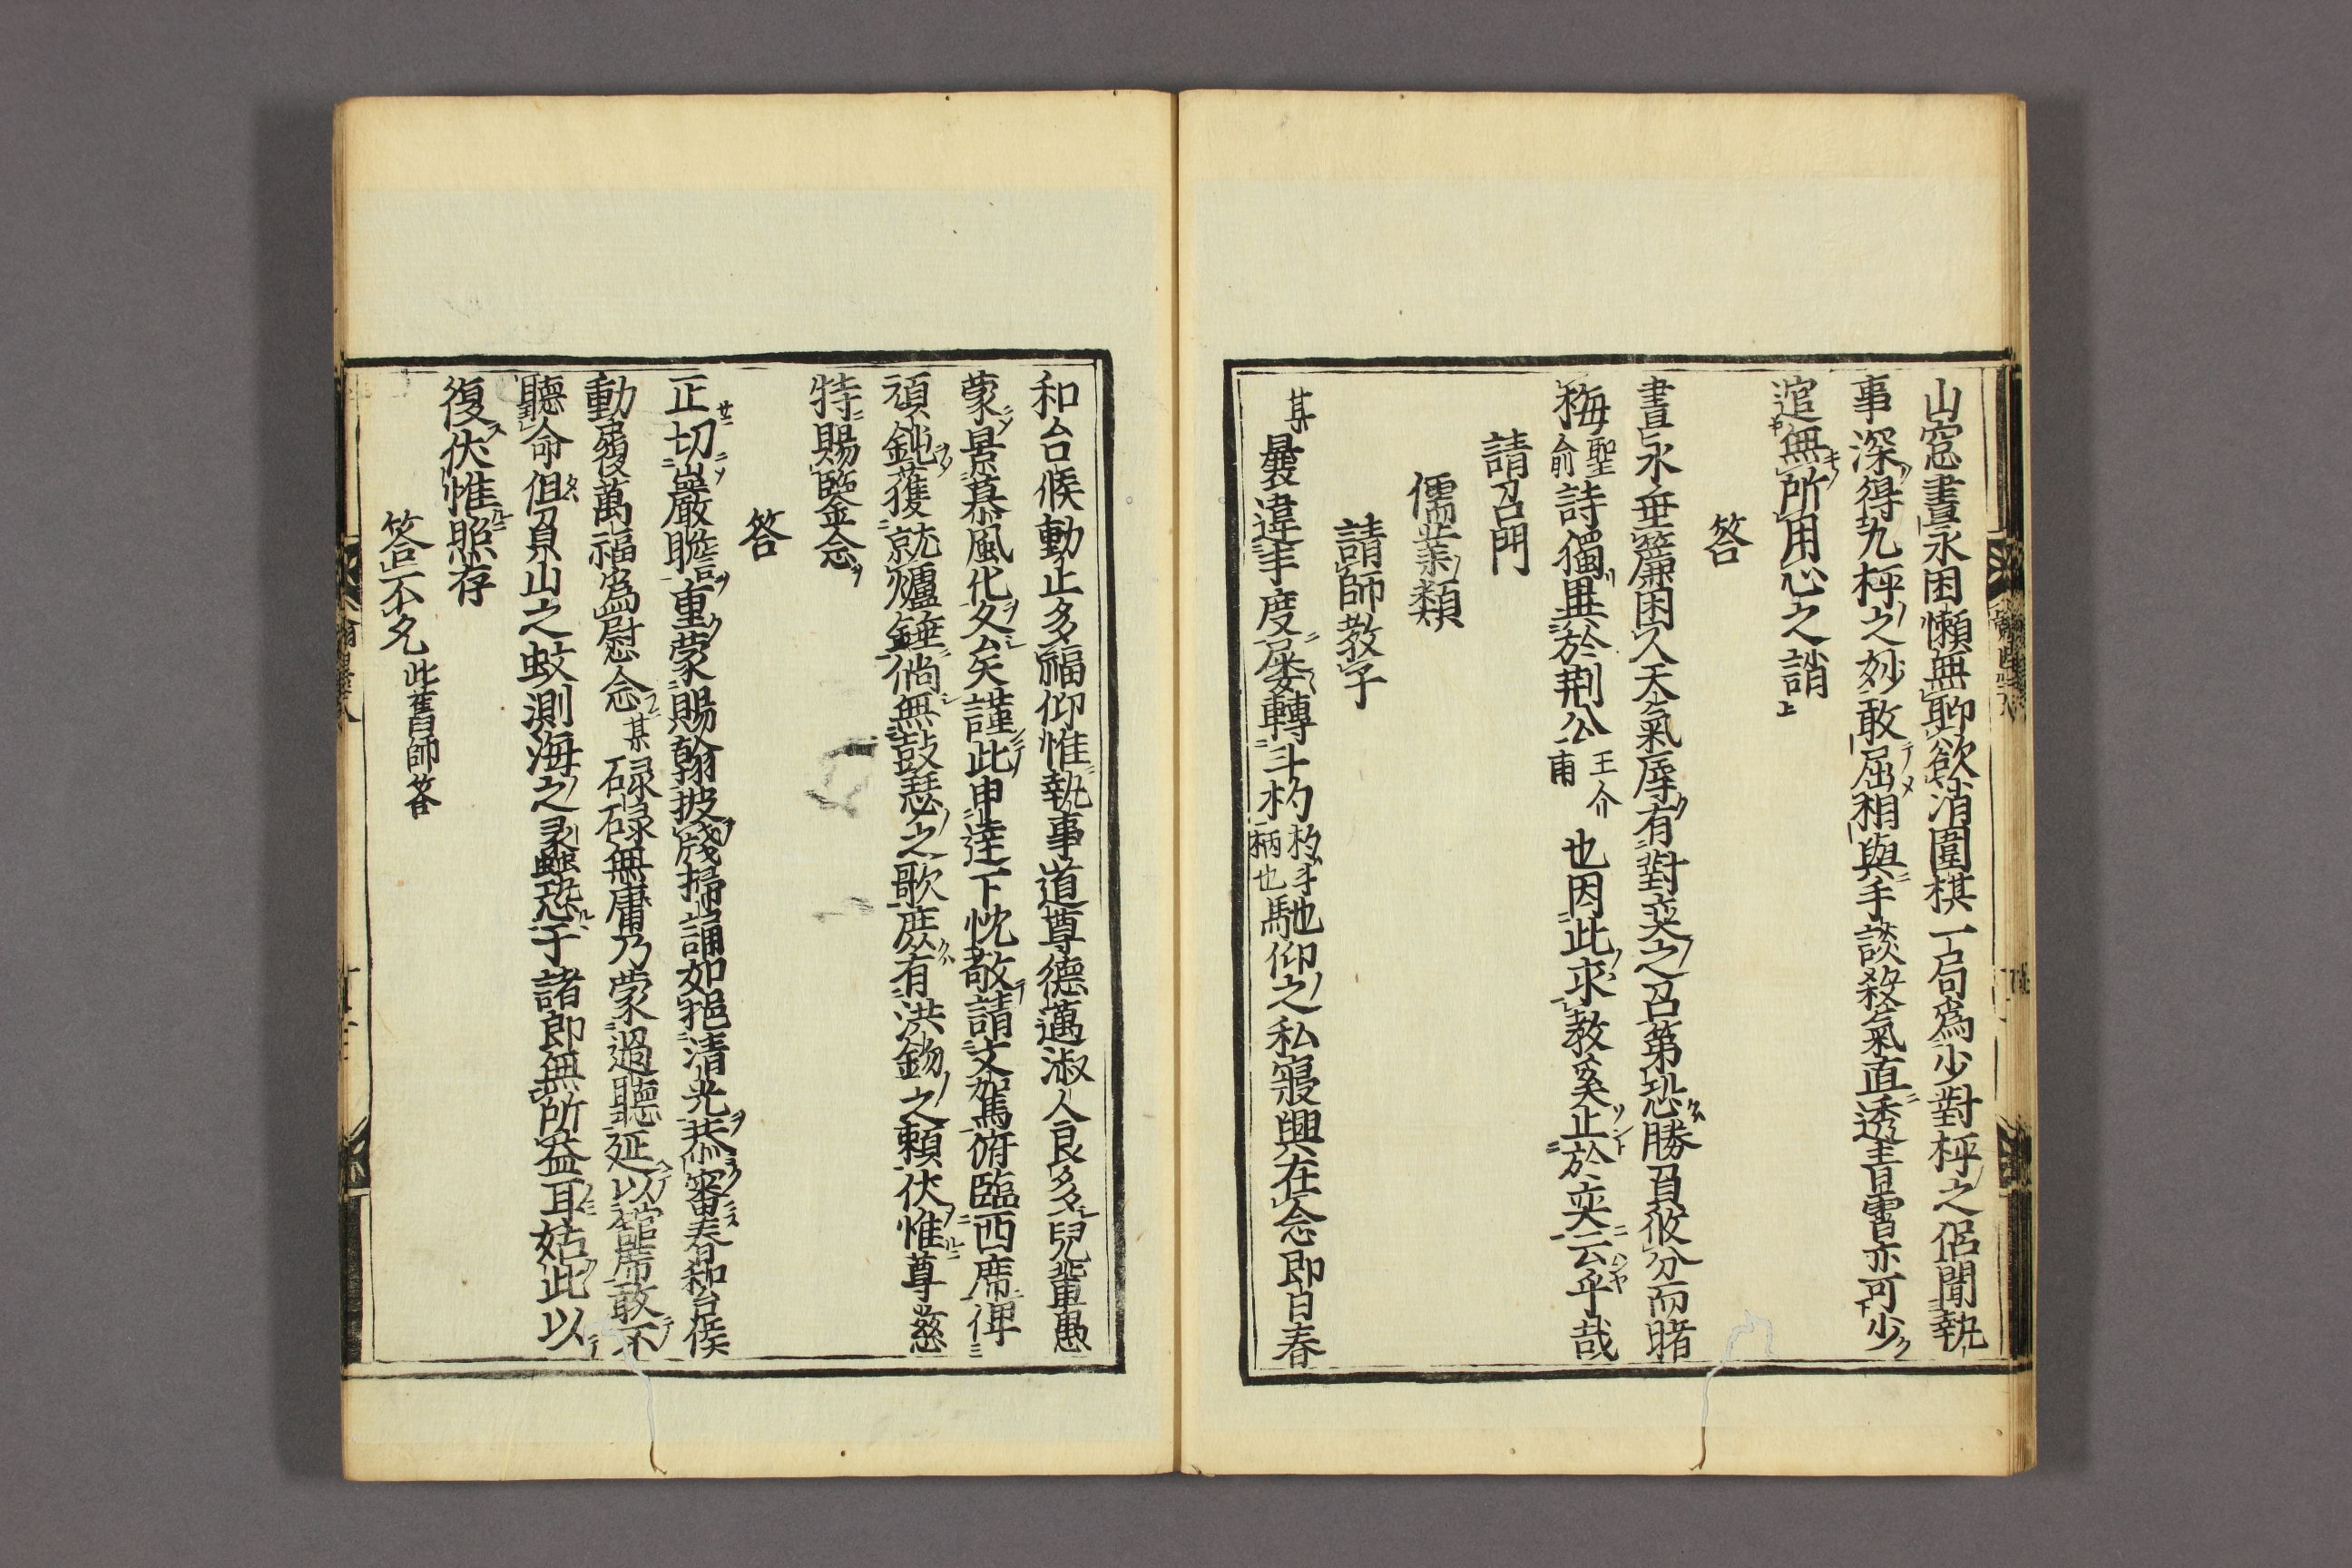 山窓晝永困懶無聊欲消圍棋一局爲少對枰之侶聞執
事深得九枰之妙敢屈相與手談殺氣直透青霄亦可少
逭無所用心之誚
答
晝永垂簾困人天氣辱有對奕之召第恐勝負攸分而賭
梅聖俞詩獨異於荆公王介甫也因此求教奚止於奕云乎哉
請召門
儒業類
請師教子
某曩違丰度屡轉斗杓杓斗柄也馳仰之私寝興在念即日春
和台候動止多福仰惟執事道尊德邁淑人良多兒輩愚
蒙景慕風化久矣謹此申達下忱敬請文駕俯臨西席俾
頑鈍獲就爐錘倘無鼓瑟之歌庶有洪鈞之賴伏惟尊慈
特賜鑒念
答
正切巖瞻重蒙賜翰披牋掃誦如挹清光恭審春和台候
動履萬福爲慰念某碌碌無庸乃蒙過聽延以舘席敢不
聽命但負山之蚊測海之蠡恐于諸郎無所益耳姑此以
復伏惟照存
答不允此舊師答